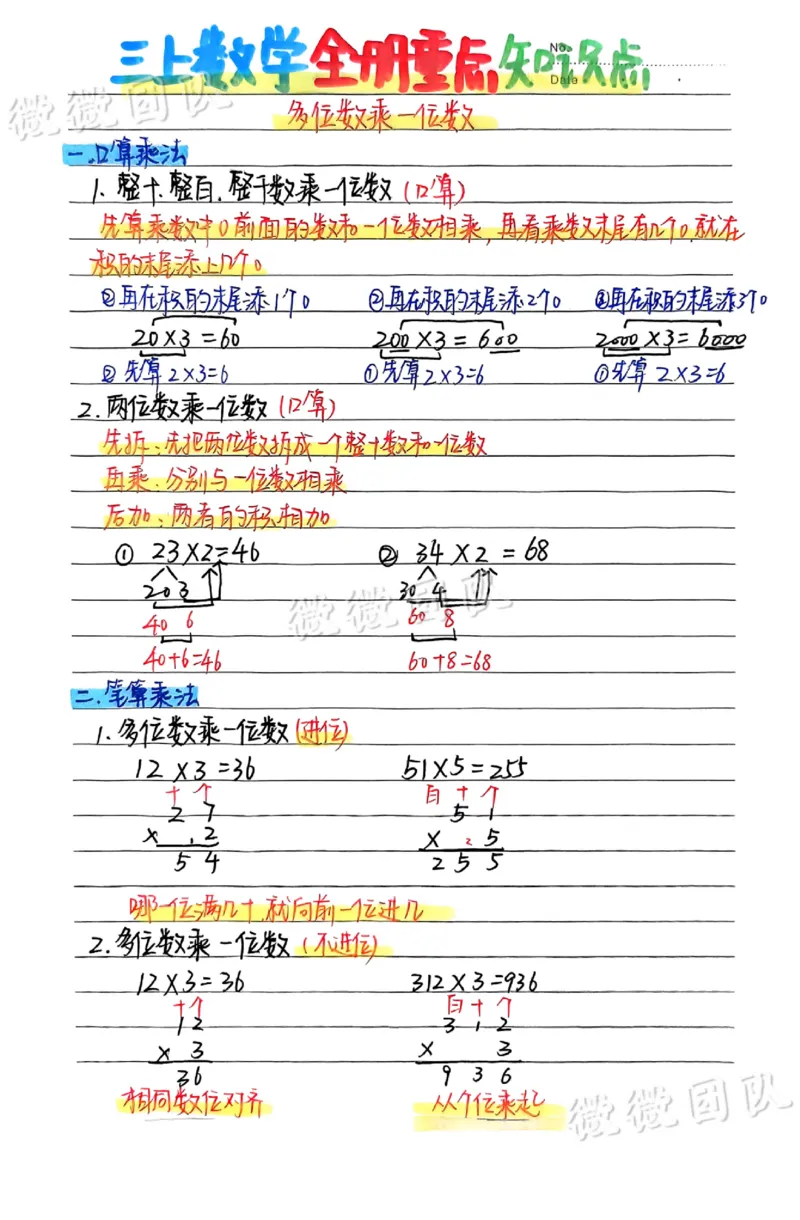 三上数学全册重点知识点
No.
Date
微微团队
多位数乘一位数
一.口算乘法
1.整十.整百.整千数乘一位数(口算)
先算乘数中0前面的数和一位数相乘,再看乘数末尾有几个0.就在
积的末尾添上几个0
②再在积的末尾添1个0 ②再在积的末尾添2个0 ②再在积的末尾添3个0
20×3=60 200×3=600 2000×3=6000
②先算2×3=6 ①先算2×3=6 ①先算 2×3=6
2.两位数乘一位数(口算)
先拆:先把两位数拆成一个整十数和一位数
再乘:分别与一位数相乘
后加:两者的积相加
① 23×2=46 ② 34×2=68
20 3 30 4
微微团队
40 6 60 8
40+6=46 60+8=68
二.笔算乘法
1.多位数乘一位数(进位)
12×3=36 51×5=255
十 个 百 十 个
2 7 5 1
× 1 2 × 2 5
5 4 2 5 5
哪一位满几十.就向前一位进几
2.多位数乘一位数(不进位)
12×3=36 312×3=936
十个 百十个
12 3 1 2
× 3 × 3
36 9 3 6
相同数位对齐 从个位乘起
微微团队